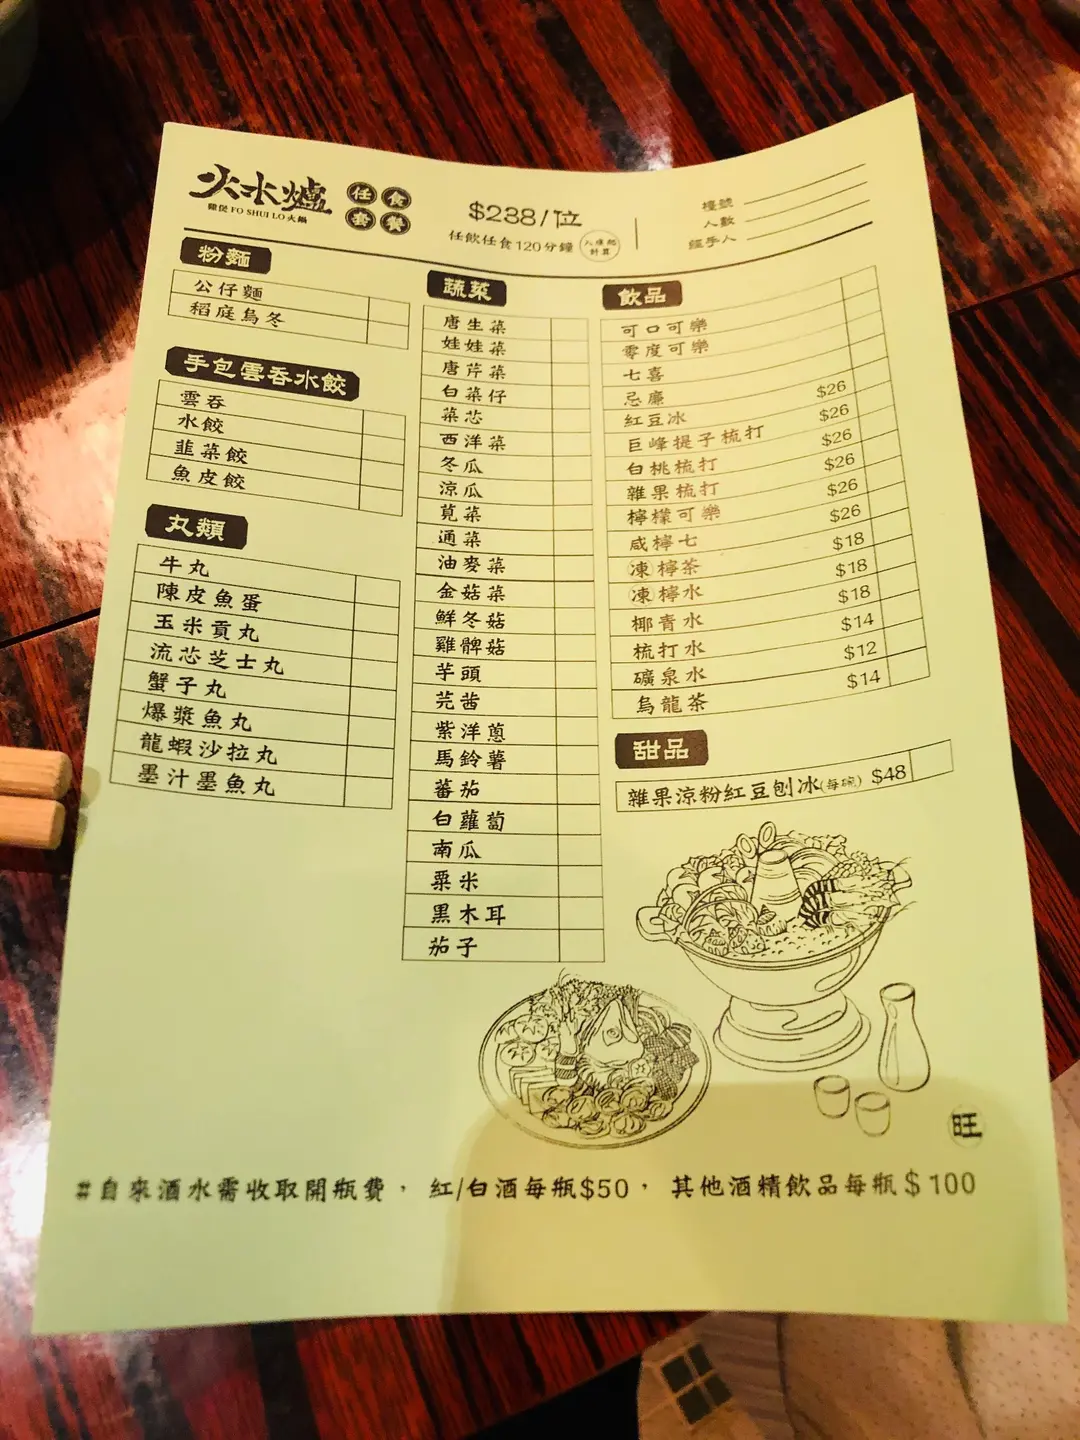 火水爐
雞煲 FO SHUI LO 火鍋
任食套餐
$238/位
任飲任食120分鐘
入座起計算
檯號
人數
經手人
粉麵
公仔麵
稻庭烏冬
手包雲吞水餃
雲吞
水餃
韮菜餃
魚皮餃
丸類
牛丸
陳皮魚蛋
玉米貢丸
流芯芝士丸
蟹子丸
爆漿魚丸
龍蝦沙拉丸
墨汁墨魚丸
蔬菜
唐生菜
娃娃菜
唐芹菜
白菜仔
菜芯
西洋菜
冬瓜
涼瓜
莧菜
通菜
油麥菜
金菇菜
鮮冬菇
雞髀菇
芋頭
芫茜
紫洋蔥
馬鈴薯
蕃茄
白蘿蔔
南瓜
粟米
黑木耳
茄子
飲品
可口可樂
零度可樂
七喜
忌廉
紅豆冰 $26
巨峰提子梳打 $26
白桃梳打 $26
雜果梳打 $26
檸檬可樂 $26
咸檸七 $26
凍檸茶 $18
凍檸水 $18
椰青水 $18
梳打水 $14
礦泉水 $12
烏龍茶 $14
甜品
雜果涼粉紅豆刨冰(每碗) $48
旺
#自來酒水需收取開瓶費，紅/白酒每瓶$50，其他酒精飲品每瓶$100